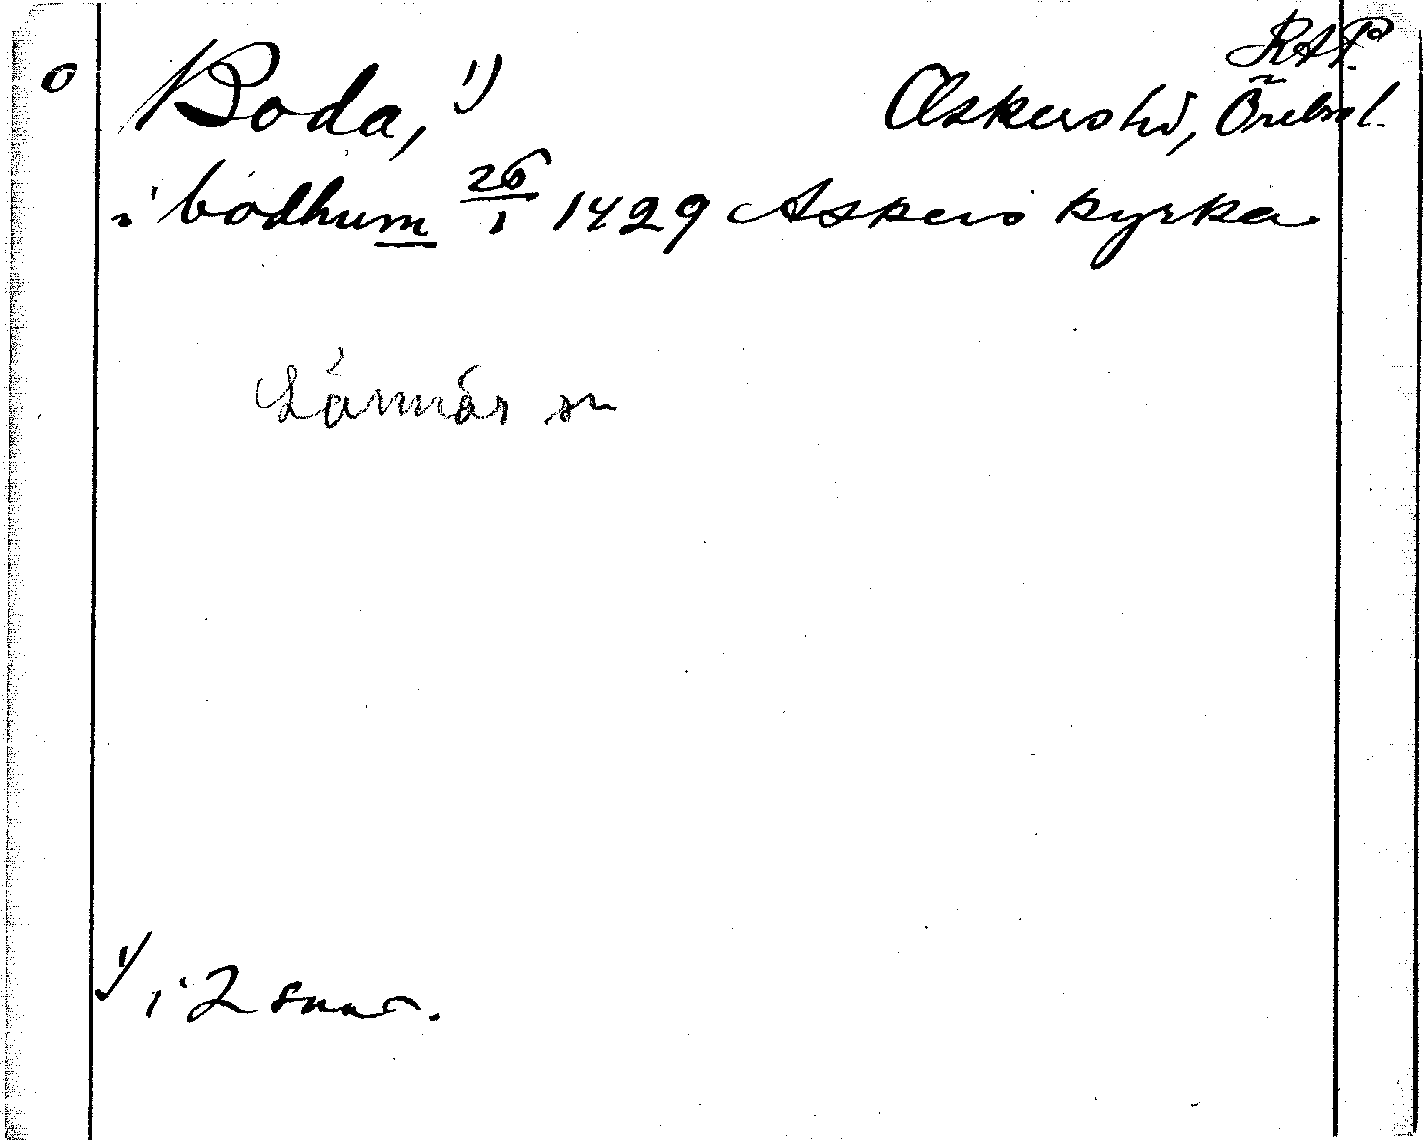 RAP.
o Boda, 1) Askers hd, Örebro l.
i bodhum 26/1 1429 Askers kyrka
Lännäs sn
1) i 2 snar.